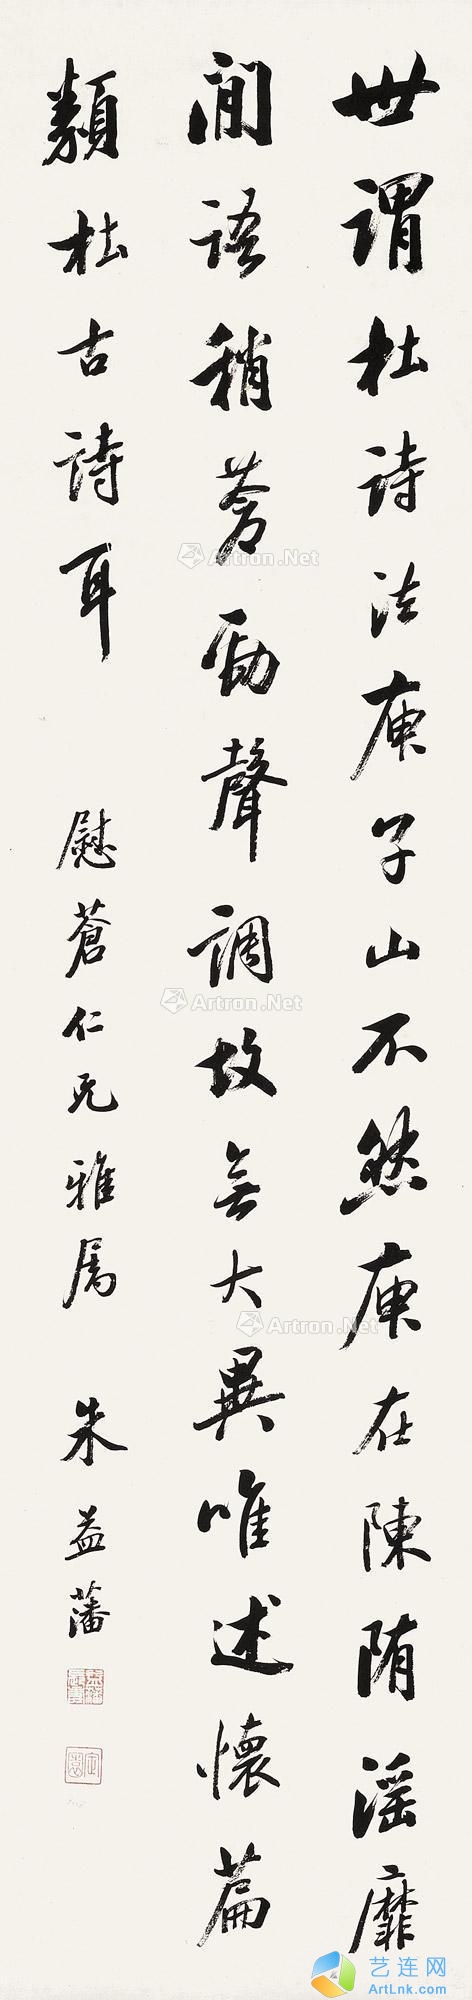 世谓杜詩法庾子山不然庾在陳隋淫靡
间语稍蒼勁聲調故無大異唯述懷篇
類杜古詩耳
慰蒼仁兄雅属
朱益藩
Artron.Net
Artron.Net
Artron.Net
艺连网
ArtLnk.com